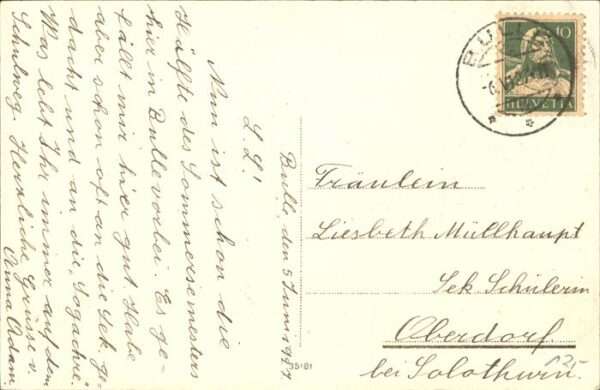 Bulle, den 5. Juni 1927
L. L!
Nun ist schon die
Hälfte des Sommersemesters
hier in Bulle vorbei. Es ge-
fällt mir hier gut. Habe
aber schon oft an die Sek. ge-
dacht und an die
Was lebt Ihr immer auf dem
Schulweg. Herzliche Grüsse v.
Anna Adam
BULLE
10
HELVETIA
Fräulein
Liesbeth Müllhaupt
Sek. Schülerin
Oberdorf.
bei Solothurn.